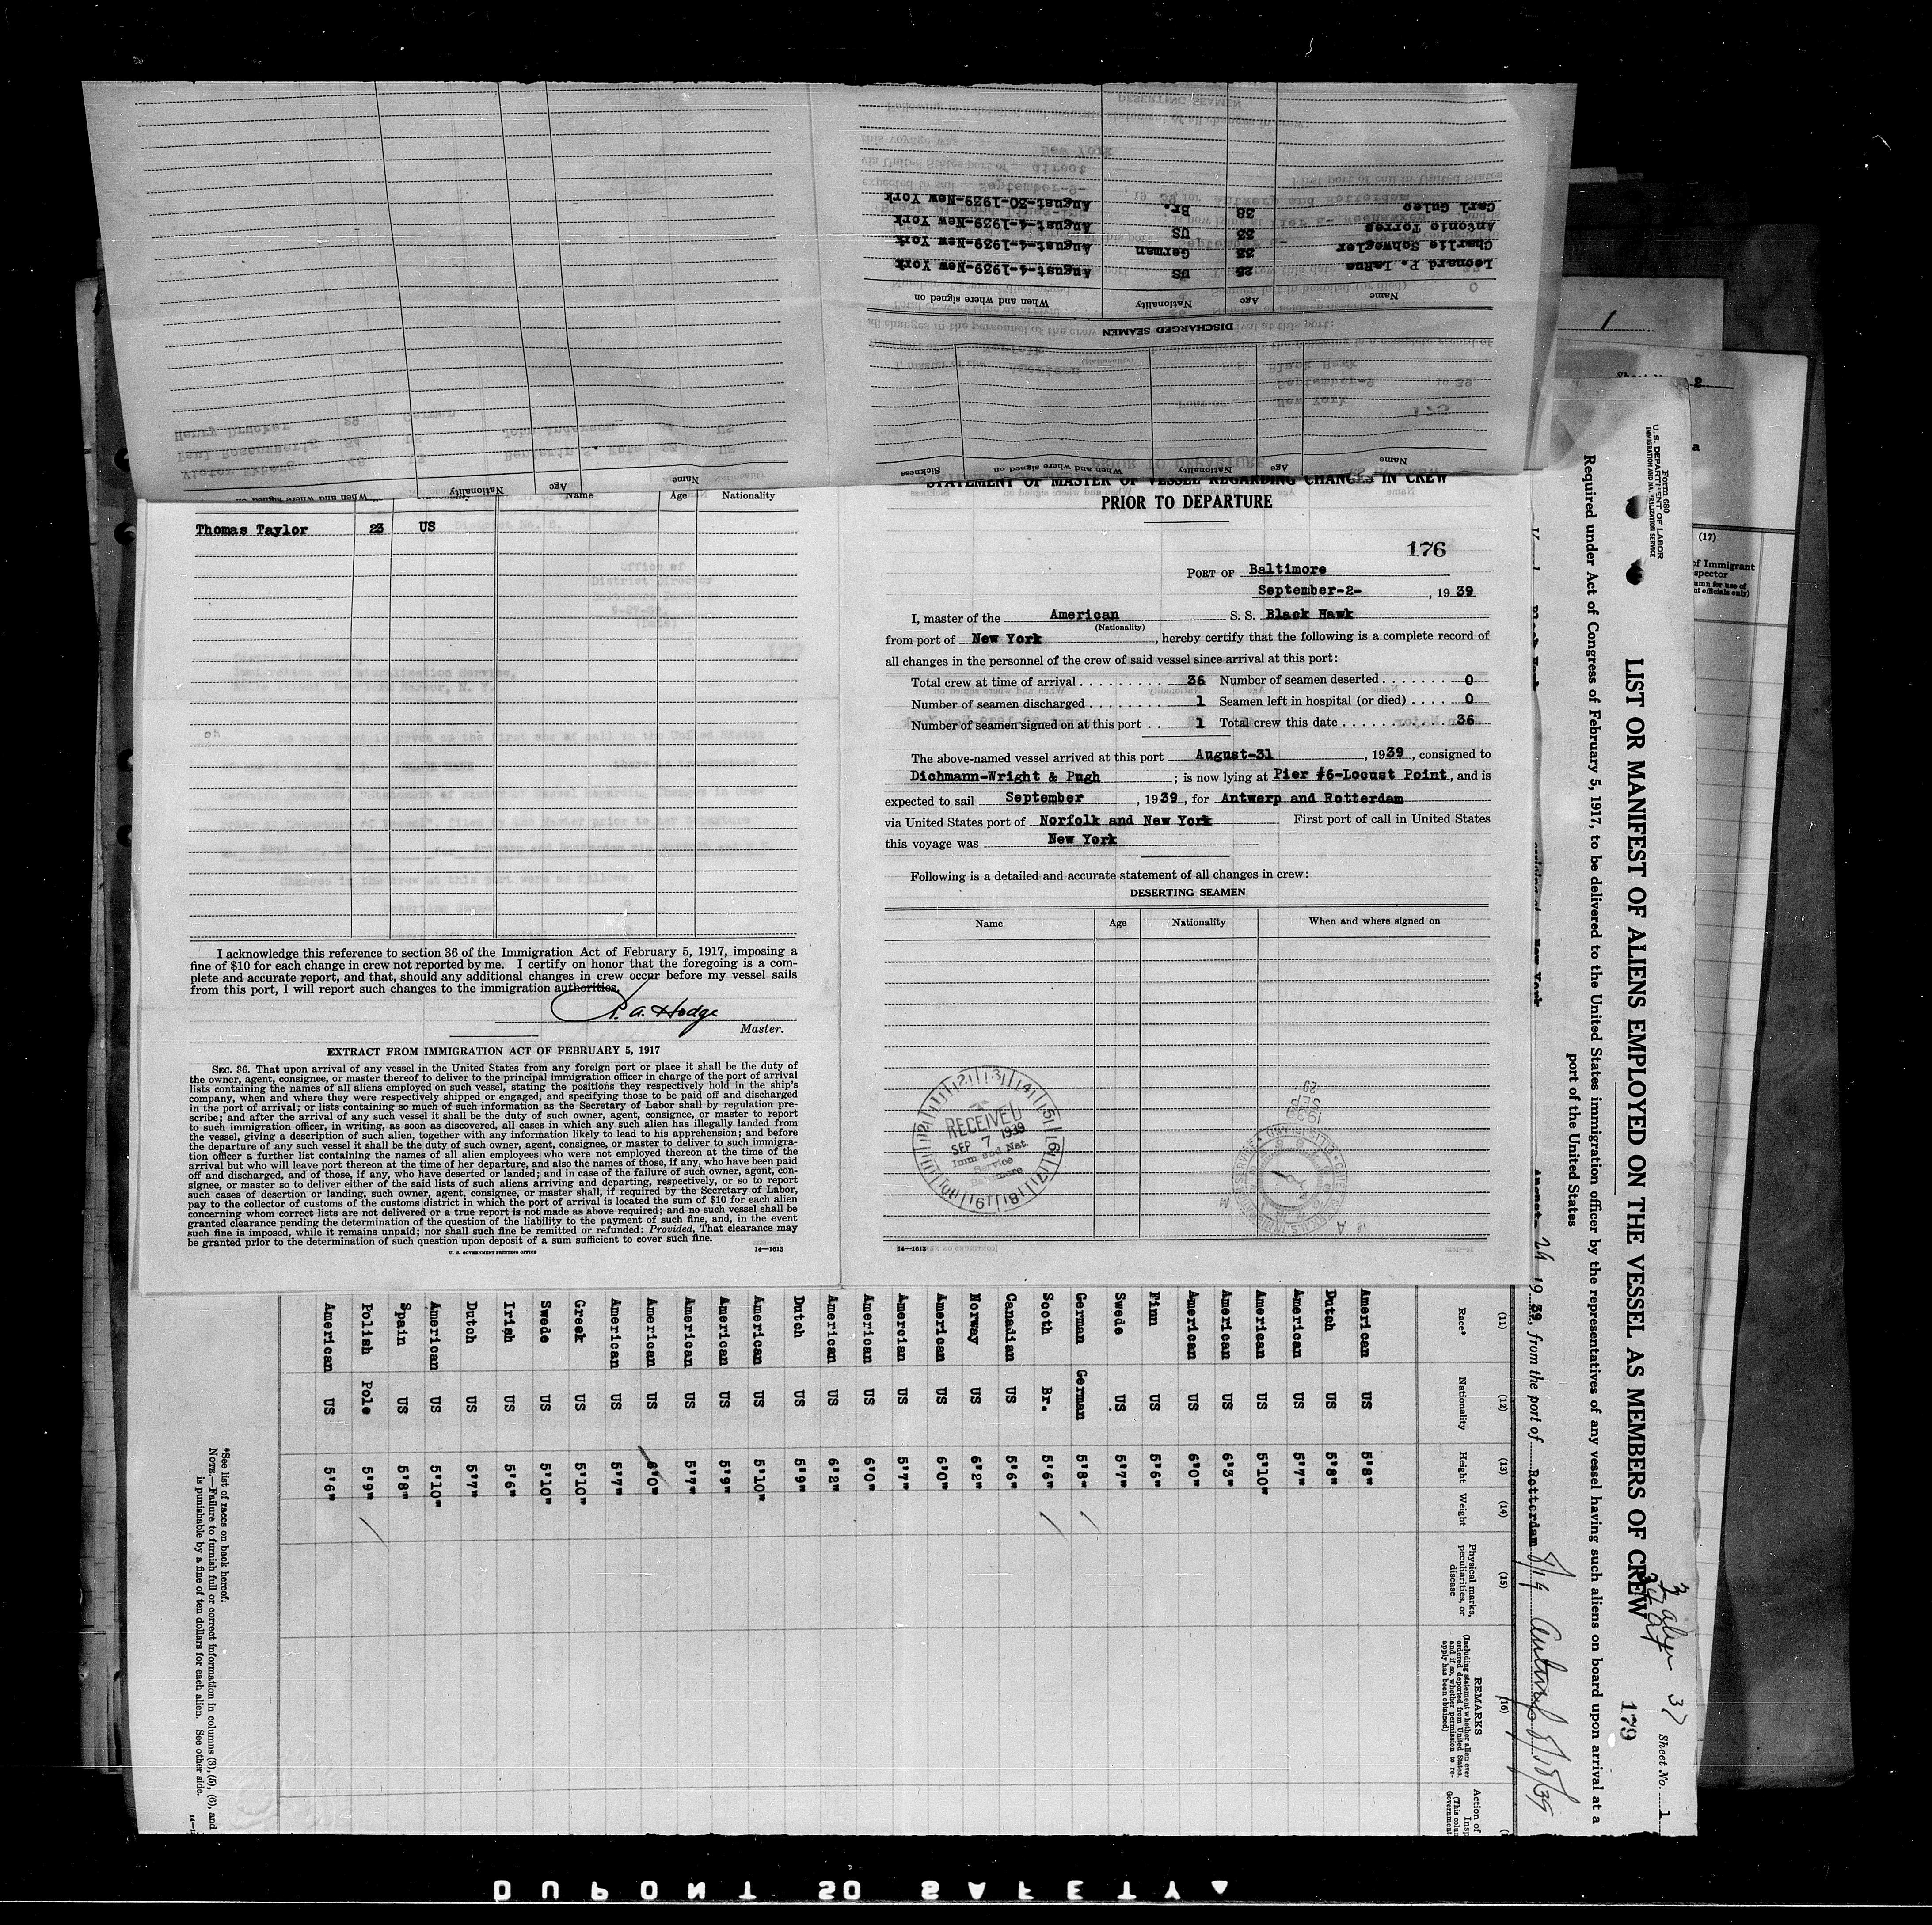 Carl Guleo 38 Br. August-20-1939-New York
Antonio Torres 33 US August-4-1939-New York
Charlie Schwegler 33 German August-4-1939-New York
Leonard P. LaRue 25 US August-4-1939-New York
Name Age Nationality When and where signed on
DISCHARGED SEAMEN
Name Age Nationality When and where signed on Sickness
Name Age Nationality
Thomas Taylor 23 US
I acknowledge this reference to section 36 of the Immigration Act of February 5, 1917, imposing a
fine of $10 for each change in crew not reported by me. I certify on honor that the foregoing is a com-
plete and accurate report, and that, should any additional changes in crew occur before my vessel sails
from this port, I will report such changes to the immigration authorities.
R. A. Hodge
Master.
EXTRACT FROM IMMIGRATION ACT OF FEBRUARY 5, 1917
SEC. 36. That upon arrival of any vessel in the United States from any foreign port or place it shall be the duty of
the owner, agent, consignee, or master thereof to deliver to the principal immigration officer in charge of the port of arrival
lists containing the names of all aliens employed on such vessel, stating the positions they respectively hold in the ship's
company, when and where they were respectively shipped or engaged, and specifying those to be paid off and discharged
in the port of arrival; or lists containing so much of such information as the Secretary of Labor shall by regulation pre-
scribe; and after the arrival of any such vessel it shall be the duty of such owner, agent, consignee, or master to report
to such immigration officer, in writing, as soon as discovered, all cases in which any such alien has illegally landed from
the vessel, giving a description of such alien, together with any information likely to lead to his apprehension; and before
the departure of any such vessel it shall be the duty of such owner, agent, consignee, or master to deliver to such immigra-
tion officer a further list containing the names of all alien employees who were not employed thereon at the time of the
arrival but who will leave port thereon at the time of her departure, and also the names of those, if any, who have been paid
off and discharged, and of those, if any, who have deserted or landed; and in case of the failure of such owner, agent, con-
signee, or master so to deliver either of the said lists of such aliens arriving and departing, respectively, or so to report
such cases of desertion or landing, such owner, agent, consignee, or master shall, if required by the Secretary of Labor,
pay to the collector of customs of the customs district in which the port of arrival is located the sum of $10 for each alien
concerning whom correct lists are not delivered or a true report is not made as above required; and no such vessel shall be
granted clearance pending the determination of the question of the liability to the payment of such fine, and, in the event
such fine is imposed, while it remains unpaid; nor shall such fine be remitted or refunded: Provided, That clearance may
be granted prior to the determination of such question upon deposit of a sum sufficient to cover such fine.
U. S. GOVERNMENT PRINTING OFFICE 14—1613
STATEMENT OF MASTER OF VESSEL REGARDING CHANGES IN CREW
PRIOR TO DEPARTURE
176
PORT OF Baltimore
September-2- , 1939
I, master of the American S. S. Black Hawk
(Nationality)
from port of New York , hereby certify that the following is a complete record of
all changes in the personnel of the crew of said vessel since arrival at this port:
Total crew at time of arrival . . . . . . . . . . 36 Number of seamen deserted . . . . . . . 0
Number of seamen discharged . . . . . . . . . 1 Seamen left in hospital (or died) . . . . 0
Number of seamen signed on at this port . . . 1 Total crew this date . . . . . . . . . . . 36
The above-named vessel arrived at this port August-31 , 1939, consigned to
Dichmann-Wright & Pugh ; is now lying at Pier #6-Locust Point, and is
expected to sail September , 1939, for Antwerp and Rotterdam
via United States port of Norfolk and New York First port of call in United States
this voyage was New York
Following is a detailed and accurate statement of all changes in crew:
DESERTING SEAMEN
Name Age Nationality When and where signed on
RECEIVED
SEP 7 1939
Imm and Nat.
Service
Baltimore
14—1613
Form 680
U. S. DEPARTMENT OF LABOR
IMMIGRATION AND NATURALIZATION SERVICE
Sheet No. 1
179
LIST OR MANIFEST OF ALIENS EMPLOYED ON THE VESSEL AS MEMBERS OF CREW
Required under Act of Congress of February 5, 1917, to be delivered to the United States immigration officer by the representatives of any vessel having such aliens on board upon arrival at a
port of the United States
New York August 24 1939, from the port of Rotterdam
(11) (12) (13) (14) (15) (16)
Race* Nationality Height Weight Physical marks, peculiarities, or disease REMARKS
(Including statement whether alien ever ordered deported from United States, and if so, whether permission to reapply has been obtained)
American US 5'8"
Dutch US 5'8"
American US 5'7"
American US 5'10"
American US 6'3"
American US 6'0"
Finn US 5'6"
Swede US 5'7"
German German 5'8"
Scoth Br. 5'6"
Canadian US 5'6"
Norway US 6'2"
American US 6'0"
Amercian US 5'7"
American US 6'0"
American US 6'2"
Dutch US 5'9"
American US 5'10"
American US 5'9"
American US 5'7"
American US 6'0"
American US 5'7"
Greek US 5'10"
Swede US 5'10"
Irish US 5'6"
Dutch US 5'7"
American US 5'10"
Spain US 5'8"
Polish Pole 5'9"
American US 5'6"
*See list of races on back hereof.
NOTE.—Failure to furnish full or correct information in columns (3), (5), (6), and
is punishable by a fine of ten dollars for each alien. See other side.
(17)
of Immigrant
DUPONT SAFETY